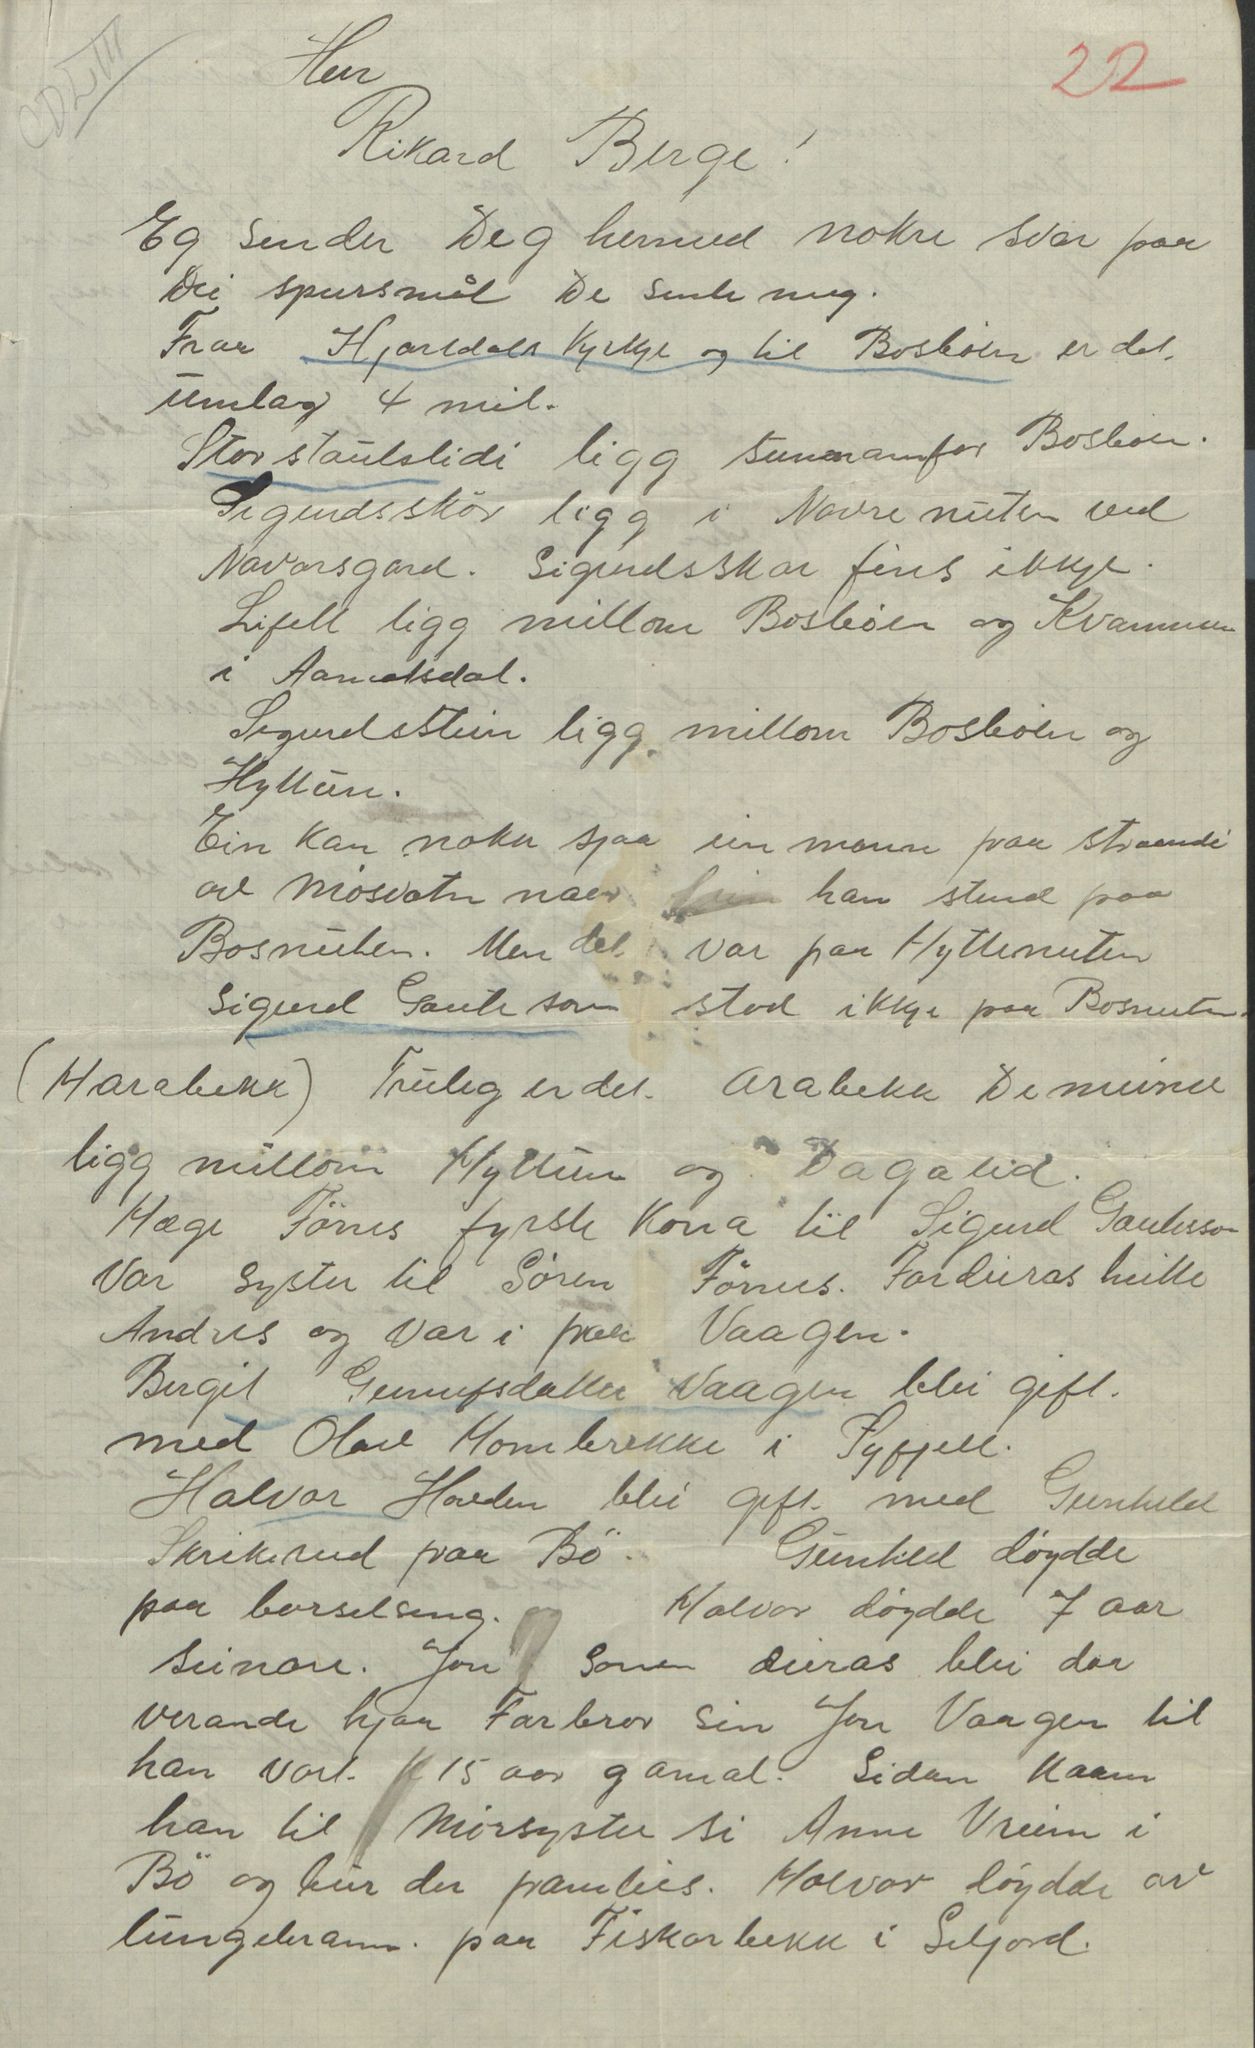 CDLIII
22
Herr
Rikard Berge!
Eg sender Deg hermed nokre svar paa
Dei spursmål De sente meg.
Fraa Hjartdals Kyrkje og til Bosbøen er det
umlag 4 mil.
Storstaulslidi ligg sunnanfor Bosbøen.
Sigurdsskör ligg i Navrenuten ved
Navarsgard. Sigurdsskar fins ikkje.
Lifell ligg millom Bosbøen og Kvammen
i Aamotsdal.
Sigurdsstein ligg millom Bosbøen og
Hyttun.
Ein kan noku sjaa ein mann paa straandi
av Møsvatn naar han stend paa
Bosnuten. Men det var paa Hyttenuten
Sigurd Gauteson stod ikkje paa Bosnuten.
(Harabekk) Truleg er det Arabekk De meiner
ligg millom Hyttun og Dagalid.
Hæge Fönnes fyrste Kona til Sigurd Gautesson
Var syster til Søren Fönnes. Far deiras heitte
Andres og var i fraa Vaagen.
Bergit Gunnufsdatter Vaagen blei gift
med Olav Hombrekke i Fyfjell.
Halvor Hovden blei gift med Gunhild
Skrikerud paa Bö. Gunhild döydde
paa barselseng. Halvor döydde 7 aar
seinare. Jon sonen deiras blei daa
verande hjaa Farbror sin Jon Vaagen til
han vart 15 aar gamal. Sidan Kaam
han til Morsyster si Anne Vreim i
Bö og bur der framleis. Halvor döydde av
lungebrann paa Fiskarbekk i Seljord.